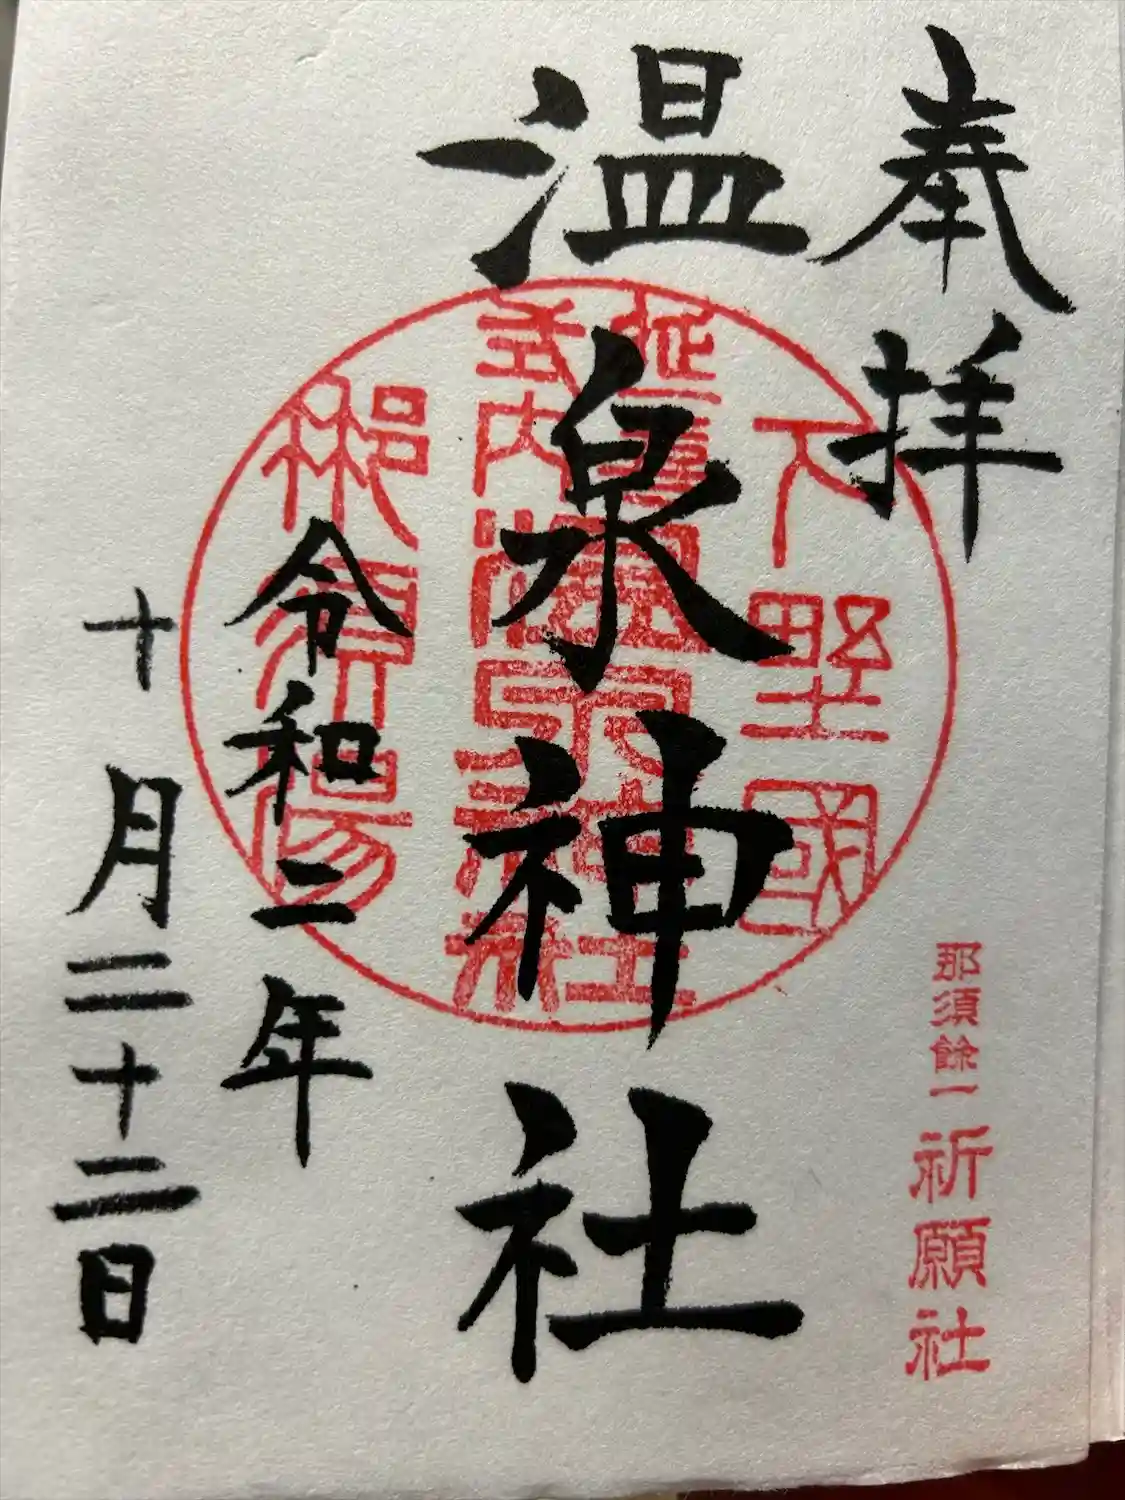 奉拝
那須餘一祈願社
下野國
延喜式内温泉神社
那須郡湯
温泉神社
令和二年
十月二十二日